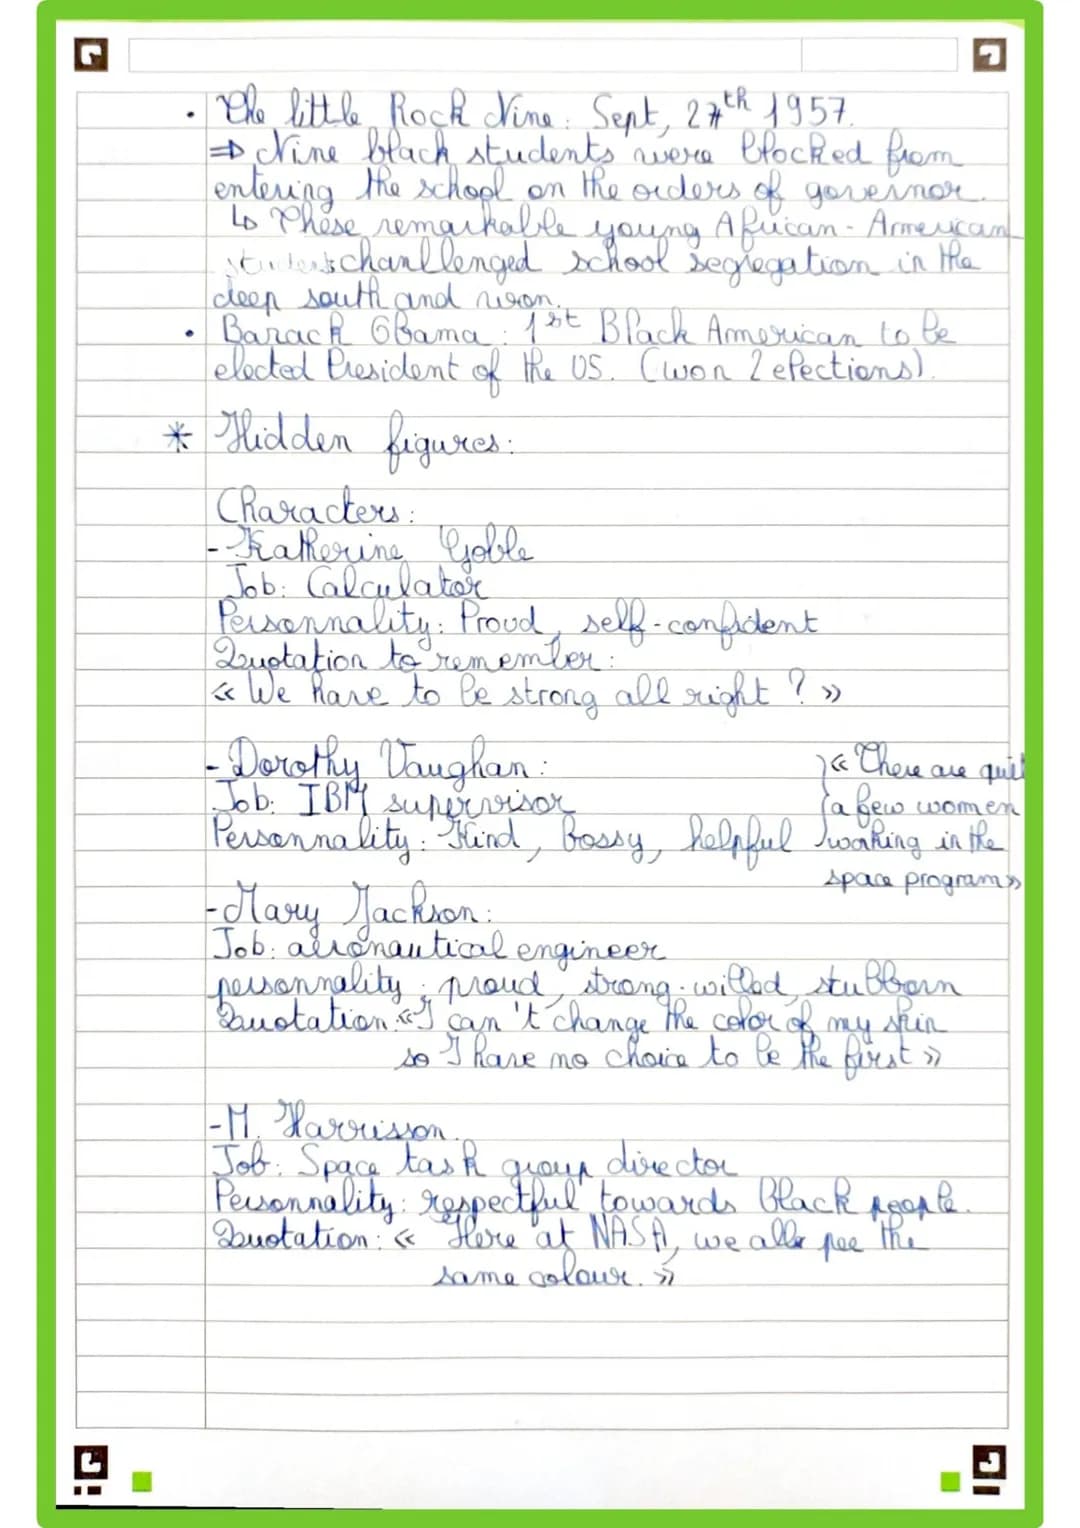 . The little Rock Nine: Sept, 27th 1957.
⇒ Nine black students were blocked from
entering the school on the orders of governor.
↳ These remarkable young African-Armerican
students chanllenged school segregation in the
deep south and won.
. Barack Obama: 1st Black American to be
elected President of the US. (won 2 elections).
* Hidden figures:
Characters:
- Katherine Goble
Job: Calculator
Personnality: Proud, self-confident
Quotation to remember:
« We have to be strong all right ? »
- Dorothy Vaughan:
Job: IBM supervisor
Personnality: Kind, bossy, helpful
« There are quit
a few women
working in the
space program»
- Mary Jackson:
Job: aeronautical engineer
personnality: proud, strong-willed, stubborn
Quotation: «I can't change the color of my skin
so I have no choice to be the first »
- M. Harrisson.
Job: Space task group director
Personnality: respectful towards black people.
Quotation: « Here at NASA, we all pee the
same colour. »